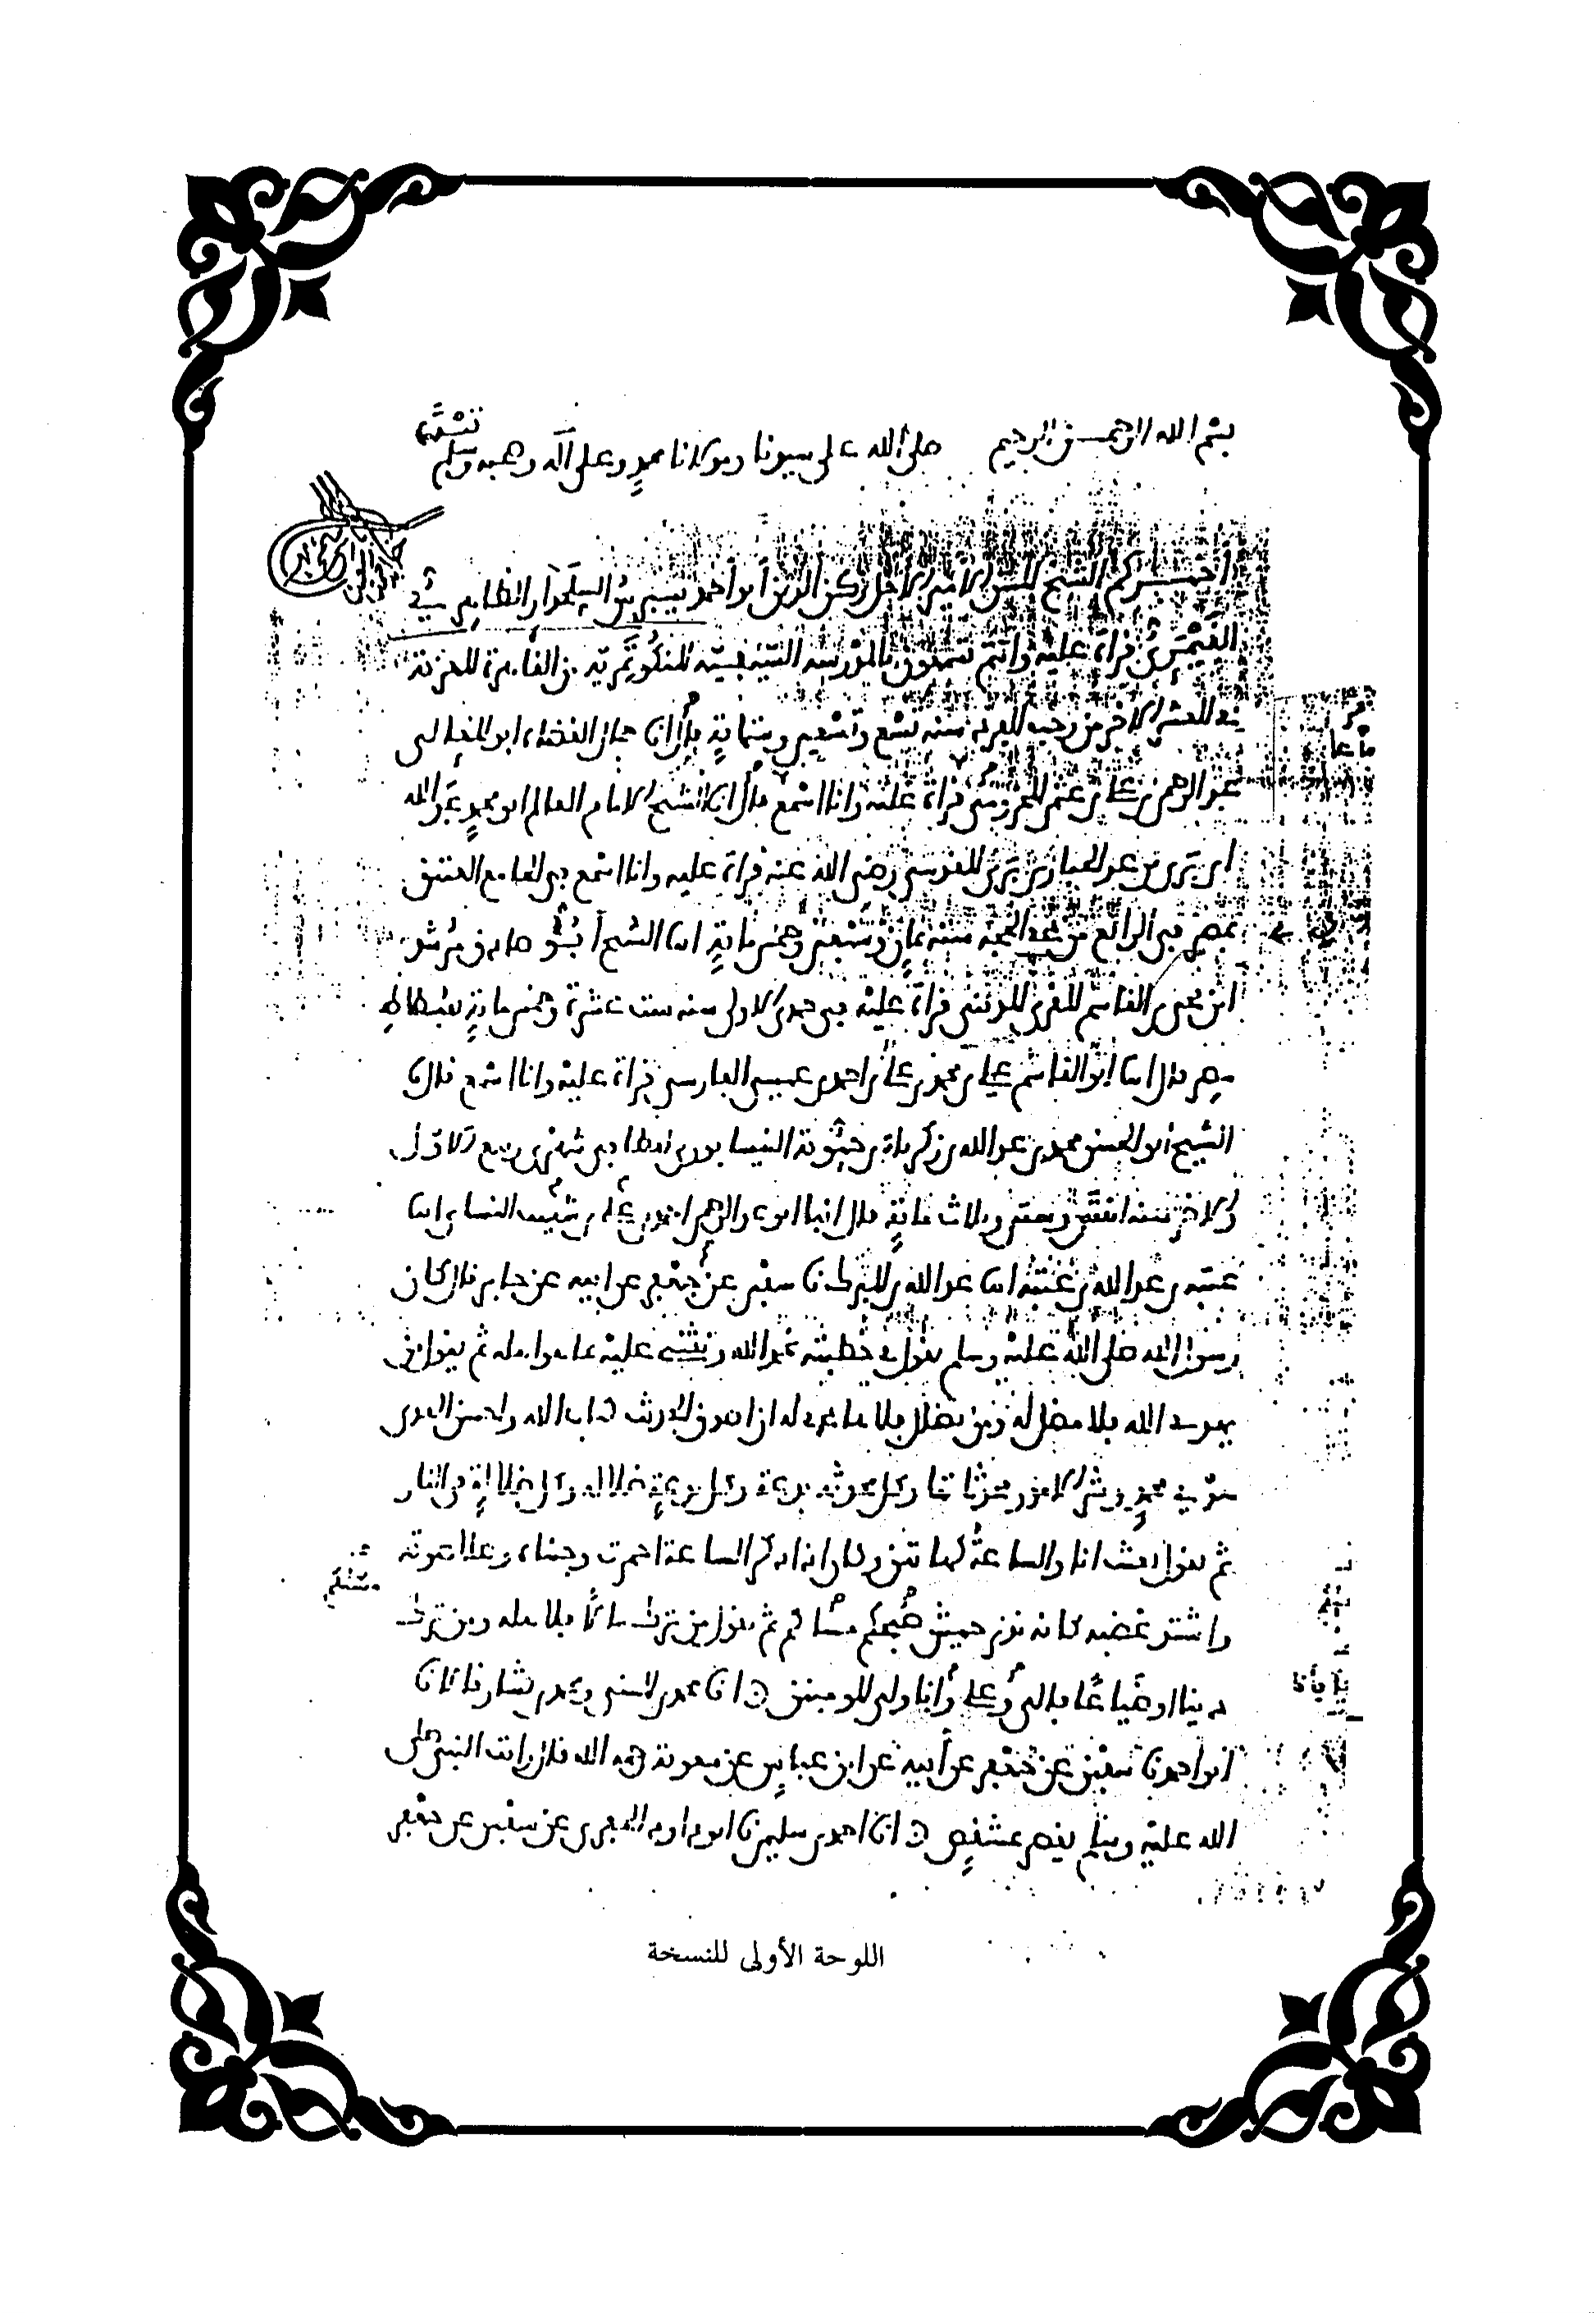 بسم الله الرحمن الرحيم صلى الله على سيدنا ومولانا محمد وعلى آله وصحبه وسلم
اخبركم الشيخ الامير الاجل ركن الدين أبو أحمد بيبرس الظاهري
القيمري قراة عليه وانتم تسمعون بالمدرسة المنكوتمرية من القاهرة المعزية
في العشر الاخر من رجب سنة تسع وتسعين وستماية قال انا جمال
عبد الرحمن بن علي بن عثمن المخزومي قراة عليه وانا اسمع قال انا الشيخ الامام العالم ابو محمد عبد الله
ابن بري بن عبد الجبار بن بري المقدسي رضي الله عنه قراة عليه وانا اسمع في الجامع العتيق
بمصر في الرابع من ذي الحجة سنة وسبعين وخمس ماية انا الشيخ أبو صادق مرشد
ابن يحيى بن القاسم المديني قراة عليه في جمدى الاولى سنة ست عشرة وخمس ماية بفسطاط
مصر قال انا ابو القاسم علي بن محمد بن علي بن احمد بن عيسى الفارسي قراة عليه وانا اسمع قال انا
الشيخ ابو الحسن محمد بن عبد الله بن زكرياء بن حيوية النيسابوري املاء في شهري ربيع الاول
والاخر سنة وستين وثلاث ماية قال انبا ابو عبد الرحمن احمد بن علي بن شعيب النساي انا
عتبة بن عبد الله بن عتبة انا عبد الله بن المبرك نا سفين عن جعفر عن ابيه عن جابر قال كان
رسول الله صلى الله عليه وسلم يقول في خطبته نحمد الله ونثني عليه بما هو اهله ثم يقول من
يهده الله فلا مضل له ومن يضلل فلا هادي له ان اصدق الحديث كتاب الله واحسن الهدي
هدي محمد وشر الامور محدثاتها وكل محدثة بدعة وكل بدعة ضلالة وكل ضلالة في النار
ثم يقول بعثت انا والساعة كهاتين وكان اذا ذكر الساعة احمرت وجنتاه وعلا صوته
واشتد غضبه كانه نذير جيش صبحكم مساكم ثم يقول من ترك مالا فلاهله ومن ترك
دينا او ضياعا فالي وعلي وانا ولي المومنين انا محمد بن المثنى ومحمد بن بشار قالا نا
ابو احمد نا سفين عن جعفر عن أبيه عن ابن عباس عن معوية رحمه الله قال رايت النبي صلى
الله عليه وسلم يقصر بمشقص انا احمد بن سليمن نا ابو داود الحفري عن سفين عن جعفر
اللوحة الأولى للنسخة